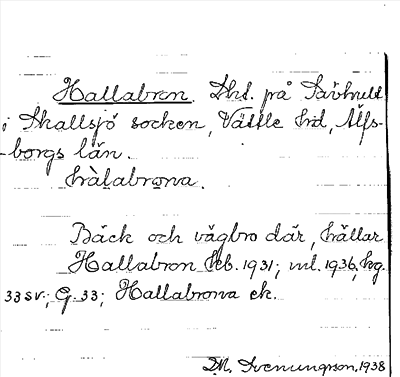 Hallabron. på Sävhult
i Skallsjö socken, Vättle hd, Älfs-
borgs län.
hàlabrơna.
Bäck och vägbro där, hällar
Hallabron kb. 1931; 1936, hg.
33 sv.; G. 33; Hallabrona ek.
M. Svenungsson, 1938